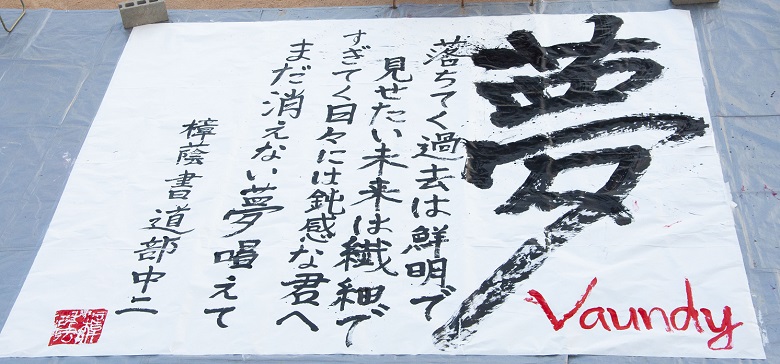 夢
落ちてく過去は鮮明で
見せたい未来は繊細で
すぎてく日々には鈍感な君へ
まだ消えない夢唱えて
樟蔭書道部中二
Vaundy